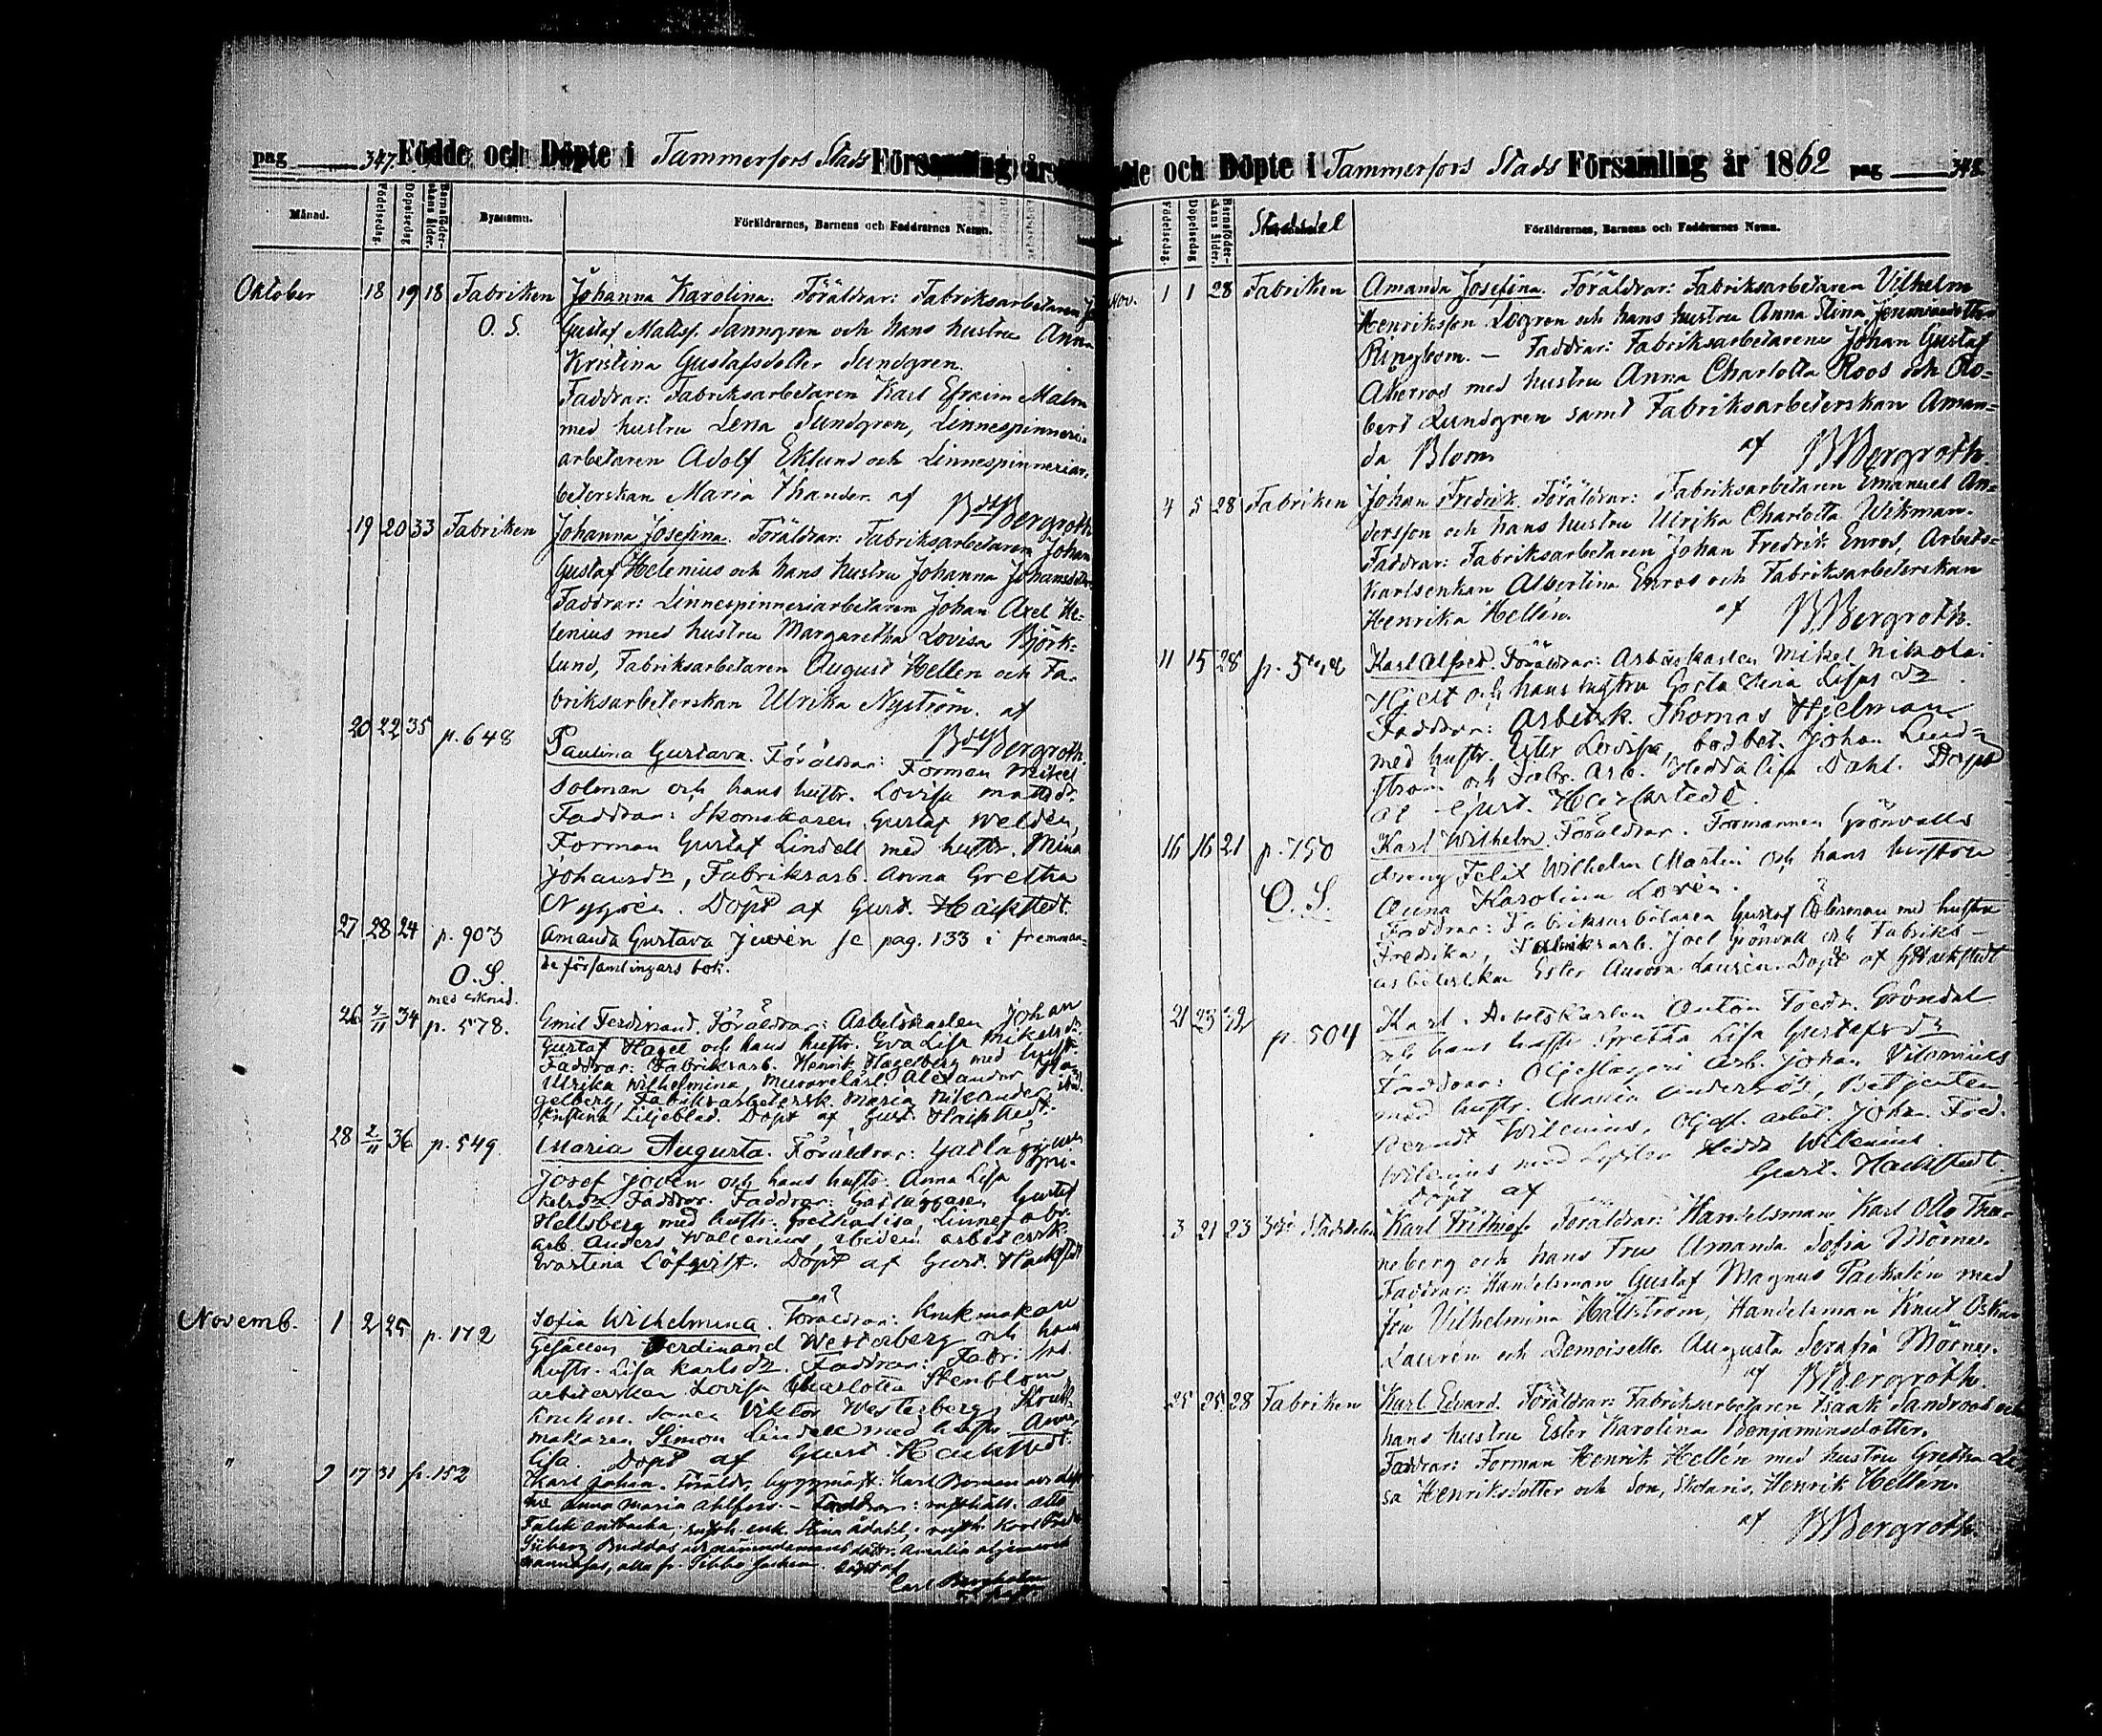 pag 347 Födde och Döpte i Tammerfors Stads Församling år
Månad. Födelsedag. Döpelsedag. Barnaföderskans ålder. Bynamn. Föräldrarnes, Barnens och Faddrarnes Namn.
Oktober 18 19 18 Fabriken Johanna Karolina. Föräldrar: Fabriksarbetaren
O. S. Gustaf Mattss. Tanngren och hans hustru Anna
Kristina Gustafsdotter Sundgren.
Faddrar: Fabriksarbetaren Karl Efraim Malm
med hustru Lena Sundgren, Linnespinneri-
arbetaren Adolf Eklund och Linnespinneriar-
beterskan Maria Thander. af Bergroth
19 20 33 Fabriken Johanna Josefina. Föräldrar: Fabriksarbetaren Johan
Gustaf Helenius och hans hustru Johanna Johansdotter
Faddrar: Linnespinneriarbetaren Johan Axel He-
lenius med hustru Margaretha Lovisa Björk-
lund, Fabriksarbetaren August Hellen och Fa-
briksarbeterskan Ulrika Nyström. af
Bergroth.
20 22 35 p. 648 Paulina Gustava. Föräldrar: Forman Mikel
Soleman och hans hustr. Lovisa Mattsdr.
Faddrar: Skomakaren Gustaf Welden,
Forman Gustaf Lindell med hustr. Mina
Johansdr, Fabriksarb. Anna Gretha
Nygrén. Döpt af Gust. Hackstedt.
27 28 24 p. 903 Amanda Gustava Juvén se pag. 133 i fremman-
O. S. de församlingars bok.
26 2/11 34 p. 578. Emil Ferdinand. Föräldrar: Arbetskarlen Johan
Gustaf Hagel och hans hustr. Eva Lisa Mikelsdr.
Faddrar: Fabriksarb. Henrik Hagelberg med hustr.
Ulrika Wilhelmina, Alexander Ha-
gelberg, Fabriksarbetersk. Maria Nikander,
Kristina Liljeblad. Döpt af Gust. Hackstedt.
28 2/11 36 p. 549. Maria Augusta. Föräldrar:
Josef Joven och hans hustr. Anna Lisa Mi-
kelsdr. Faddrar. Faddrar: Gustaf
Hellsberg med hustr. Gretha Lisa, Linnefabr.
arb. Anders Wallenius, arbetersk.
Löfqvist. Döpt af Gust. Hackstedt
Novemb. 1 2 25 p. 172 Sofia Wilhelmina. Föräldrar: Krukmakare
Gesällen Ferdinand Westerberg och hans
hustr. Lisa Karlsdr. Faddrar: Fabr.
arbeterskan Lovisa Charlotta Stenblom,
Viktor Westerberg, Skoma-
makaren Simon Lindell med hustr. Anna
Lisa. Döpt af Gust. Hackstedt.
" 9 17 31 p. 152 Karl Johan. Föräldr. byggmäst. Karl
Anna Maria Ahlfors. – Faddrar:
alla fr. Sibbo socken. Döpt af
Carl
pag 348
Födde och Döpte i Tammerfors Stads Församling år 1862
Födelsedag. Döpelsedag. Barnaföderskans ålder. Stadsdel Föräldrarnes, Barnens och Faddrarnes Namn.
Nov. 1 1 28 Fabriken Amanda Josefina. Föräldrar: Fabriksarbetaren Vilhelm
Henriksson Lögren och hans hustru Anna Stina Jeremiasdotter
Ringbom. – Faddrar: Fabriksarbetarene Johan Gustaf
Åkerros med hustru Anna Charlotta Roos och Ro-
bert Lundgren samt Fabriksarbeterskan Aman-
da Blom. af B Bergroth.
4 5 28 Fabriken Johan Fredrik. Föräldrar: Fabriksarbetaren Emanuel An-
dersson och hans hustru Ulrika Charlotta Wikman.
Faddrar: Fabriksarbetaren Johan Fredrik Enros, Arbets-
karlsenkan Albertina Enros och Fabriksarbeterskan
Henrika Hellén. af B Bergroth.
11 15 28 Karl Alfred. Föräldrar: Arbetskarlen Mikel Nikolai
Hjelt och hans hustru Lisa
Faddrar: Arbetsk. Thomas Hjelman
med hustr. Ester Lovisa, Johan Lind-
ström och Fabr. Arb. Hedda Lisa Dahl. Döpt
af Gust. Hackstedt.
16 16 21 p. 750 Karl Wilhelm. Föräldrar. Formannen Grönvalls
dreng Felix Wilhelm Martin och hans hustru
O. S. Anna Karolina Lovén.
Faddrar: Fabriksarbetaren Gustaf Åkerman med hustru
Fredrika, Fabriksarb. Joel Grönvall och Fabriks-
arbeterskan Ester Aurora Laurén. Döpt af G Hackstedt
21 23 32 p. 504 Karl. Arbetskarlen Anton Fredr. Gröndal
och hans hustr. Gretha Lisa Gustafsdr
Faddrar: Oljeslageri Arb. Johan
med hustr. Maria Andersdr, Betjenten
Berndt Wilenius, arbet. Johan Fred.
Wilenius med Hedda Wilenius.
Döpt af Gust. Hackstedt.
3 21 23 3dje Stadsdelen Karl Frithiof. Föräldrar: Handelsman Karl Otto Tha-
neberg och hans Fru Amanda Sofia Mörner.
Faddrar: Handelsman Gustaf Magnus Packalén med
fru Vilhelmina Hallström, Handelsman Knut Oskar
Laurén och Demoiselle Augusta Serafia Mörner.
af B Bergroth.
25 25 28 Fabriken Karl Edvard. Föräldrar: Fabriksarbetaren Isaak Sandroos och
hans hustru Ester Karolina Benjaminsdotter.
Faddrar: Forman Henrik Hellén med hustru Gretha Li-
sa Henriksdotter och Son, Skolaris, Henrik Hellén.
af B Bergroth.